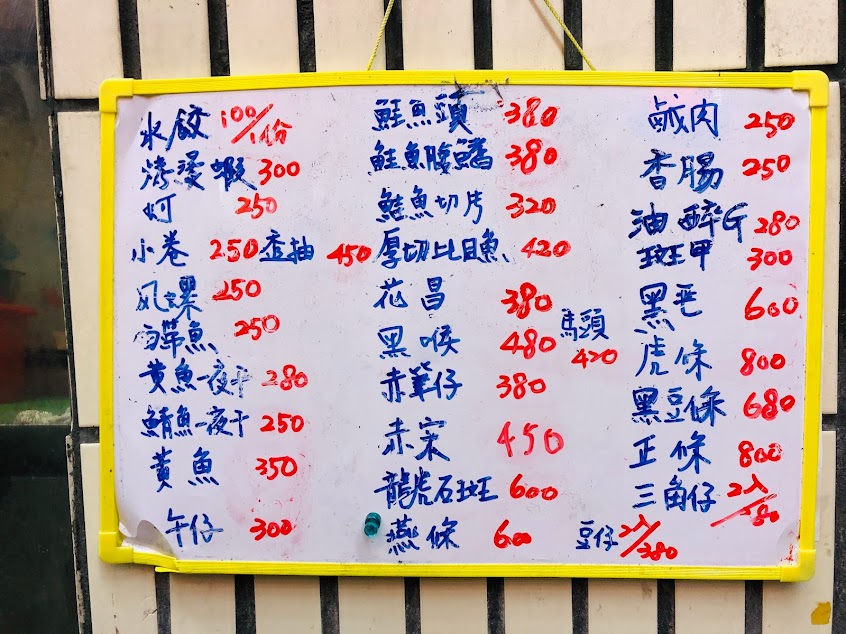 水餃 100/1份
湾燙蝦 300
蚵 250
小卷 250
歪抽 450
风螺 250
黄魚一夜干 280
鯖魚一夜干 250
黄魚 350
午仔 300
鮭魚頭 380
鮭魚腹鰭 380
鮭魚切片 320
厚切比目魚 420
花昌 380
黑喉 480
赤筆仔 380
赤宋 450
龍虎石斑 600
燕條 600
鹹肉 250
香腸 250
油 醉G 280
斑甲 300
黑毛 600
馬頭 420
虎條 800
黑豆條 680
正條 800
三角仔 2入/350
豆仔 2入/380